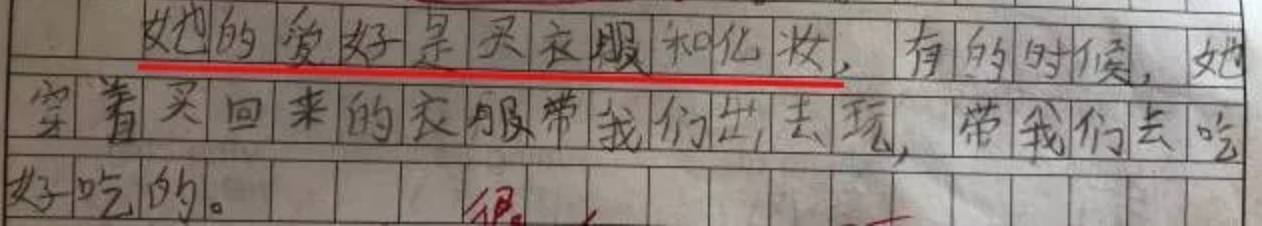 她的爱好是买衣服和化妆，有的时候，她
穿着买回来的衣服带我们出去玩，带我们去吃
好吃的。
很